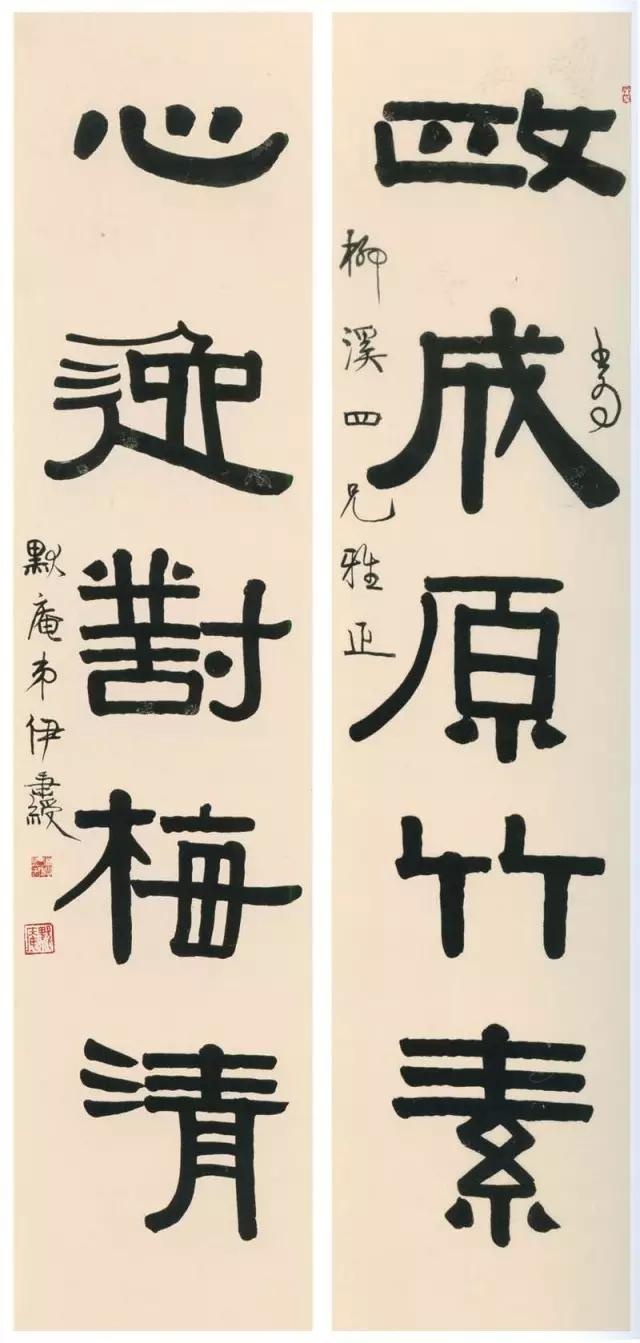 書為
政成原竹素
柳溪四兄雅正
心迹對梅清
默庵弟伊秉綬